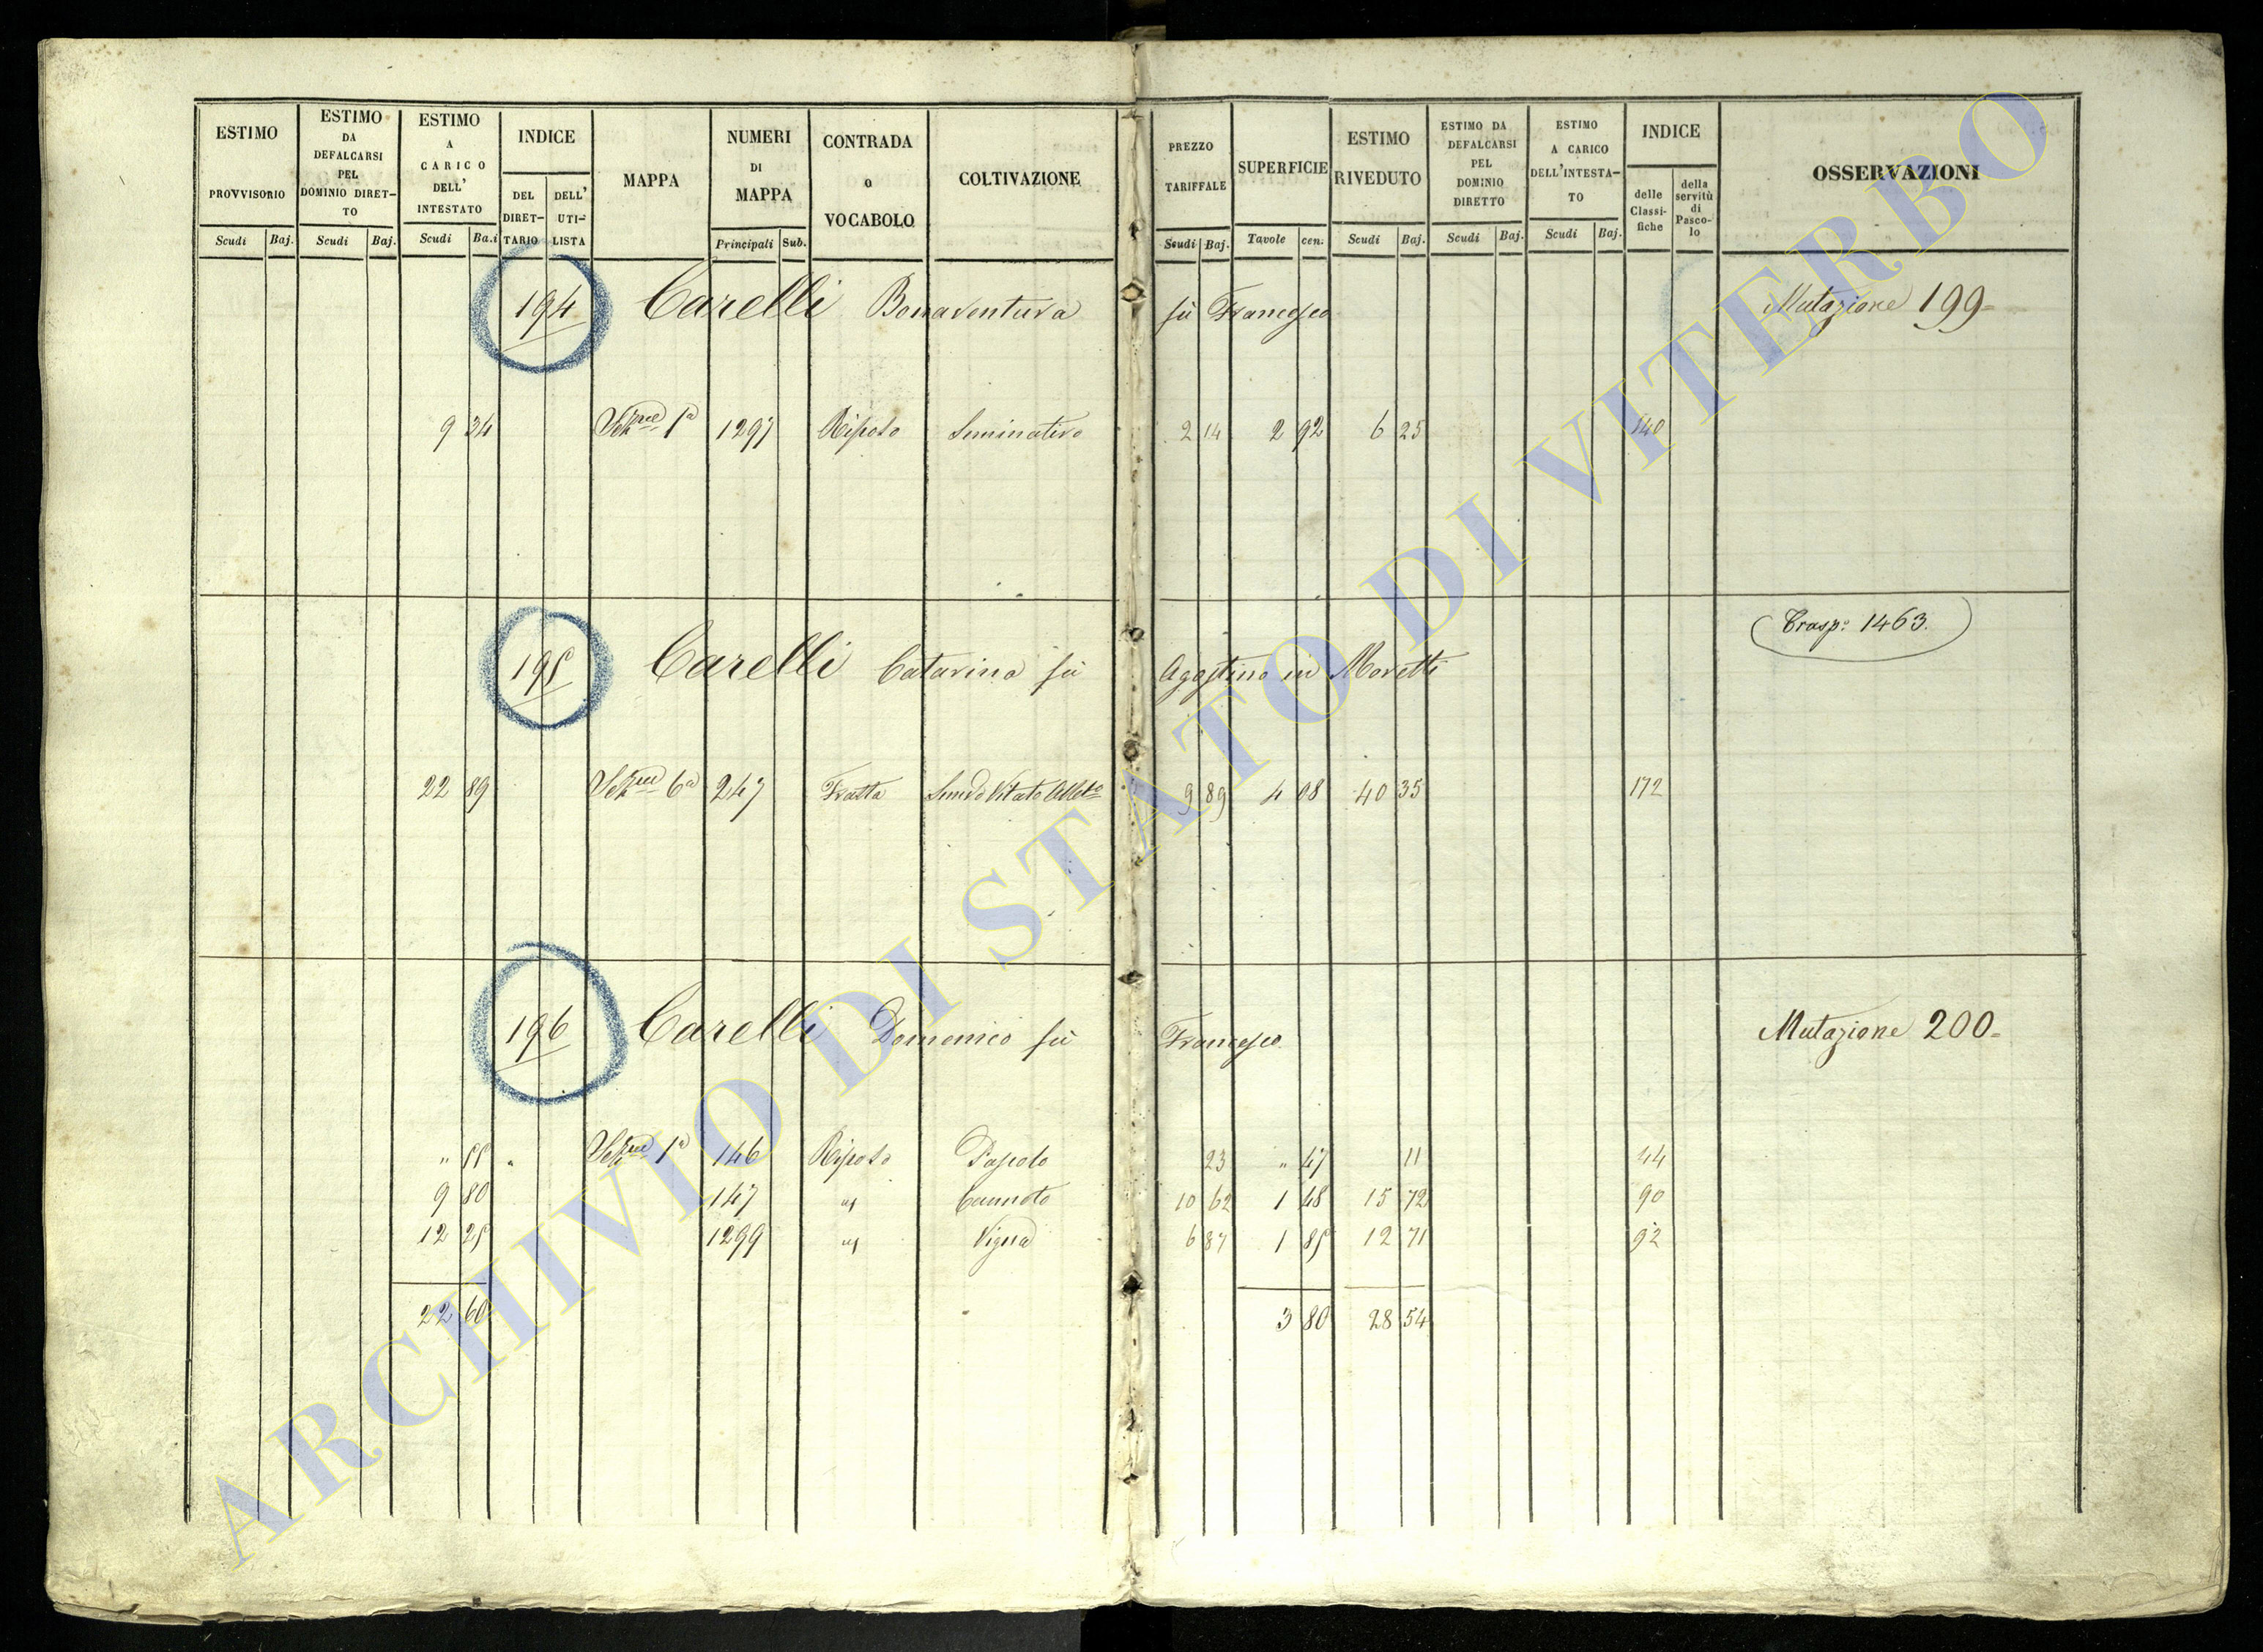 ESTIMO PROVVISORIO
Scudi Baj.
ESTIMO DA DEFALCARSI PEL DOMINIO DIRET-TO
Scudi Baj.
ESTIMO A CARICO DELL' INTESTATO
Scudi Ba.i
INDICE
DEL DIRET-TARIO
DELL' UTI-LISTA
MAPPA
NUMERI DI MAPPA
Principali Sub.
CONTRADA O VOCABOLO
COLTIVAZIONE
PREZZO TARIFFALE
Scudi Baj.
SUPERFICIE
Tavole cen.
ESTIMO RIVEDUTO
Scudi Baj.
ESTIMO DA DEFALCARSI PEL DOMINIO DIRETTO
Scudi Baj.
ESTIMO A CARICO DELL'INTESTA-TO
Scudi Baj.
INDICE
delle Classi-fiche
della servitù di Pasco-lo
OSSERVAZIONI
194 Carelli Bonaventura fù Francesco Mutazione 199
9 34 1ª 1297 Rispoto Seminativo 2 14 2 92 6 25 140
Trasp: 1463.
195 Carelli Catarina fù Agostino in Moretti
22 89 6ª 247 Fratta Vitato 9 89 4 08 40 35 172
196 Carelli Domenico fù Francesco Mutazione 200
" 55 " 1ª 146 Rispoto Pascolo 23 " 47 11 44
9 80 147 " Canneto 10 62 1 48 15 72 90
12 25 1299 " Vigna 6 87 1 85 12 71 92
22 60 3 80 28 54
ARCHIVIO DI STATO DI VITERBO